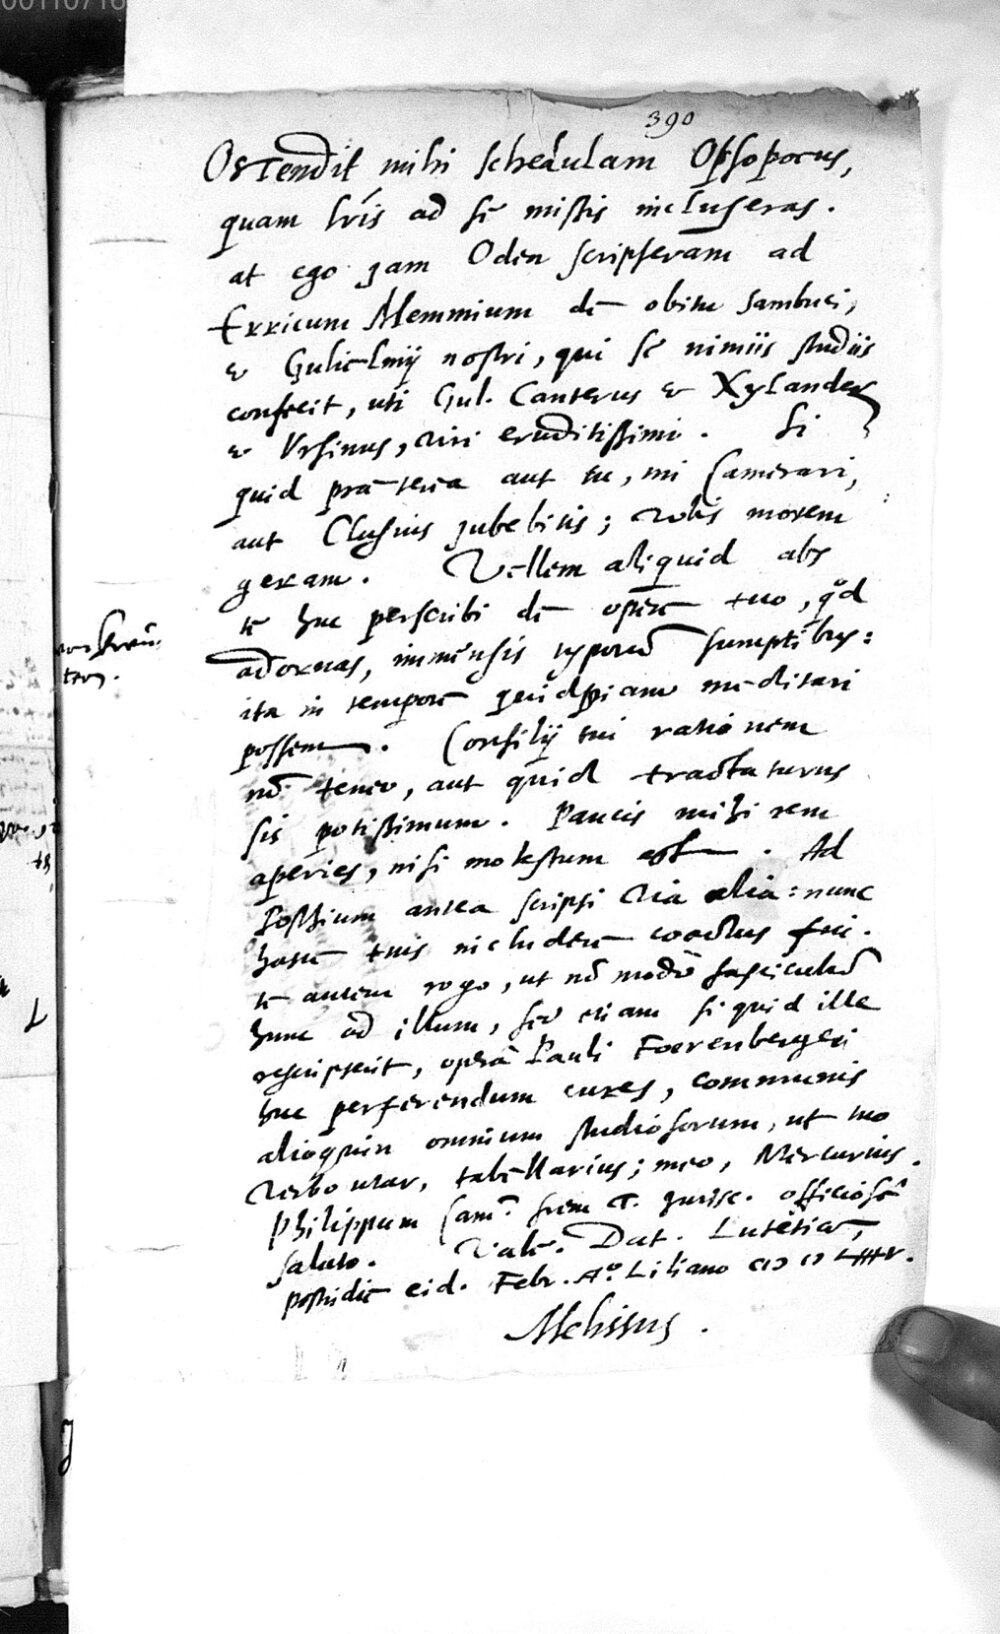 00110716
390
Ostendit mihi schedulam Opsopoeus,
quam lris ad se missis incluseras.
at ego jam Oden scripseram ad
Erricum Memmium de obitu Sambuci,
& Gulielmij nostri, qui se nimiis studiis
confecit, uti Gul. Canterus & Xylander
& Ursinus, viri eruditissimi. Si
quid praeterea aut tu, mi Camerari,
aut Clusius jubebitis; vobis morem
geram. Vellem aliquid abs
te huc perscribi de opere tuo, qd
adornas, immensis typorum sumptibus:
ita in tempore quidpiam meditari
possem. Consilij tui rationem
nō teneo, aut quid tractaturus
sis potissimum. Paucis mihi rem
aperies, nisi molestum est. Ad
Posthium antea scripsi via alia: nunc
hasce tuis includere coactus fui.
te autem rogo, ut nō modo fasciculū
hunc ad illum, sed etiam si quid ille
rescripserit, operâ Pauli Foerenbergeri
huc perferendum cures, communis
alioquin omnium studiosorum, ut tuo
verbo utar, tabellarius; meo, Mercurius.
Philippum Cam. frem T. jurisc. officiosē
saluto. Vale. Dat. Lutetiae,
postridie eid. Febr. Aº. Liliano
Melissus.